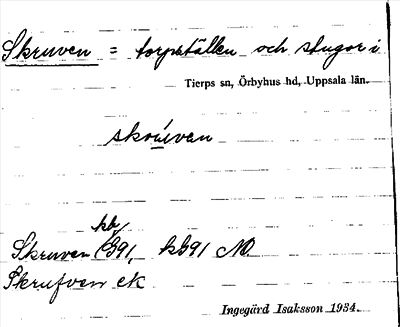 Skruven = torpställen och stugor i
Tierps sn, Örbyhus hd, Uppsala län.
skrúvan
kb/
Skruven 1691, kb91 NO.
Skrufven ek
Ingegärd Isaksson 1934.